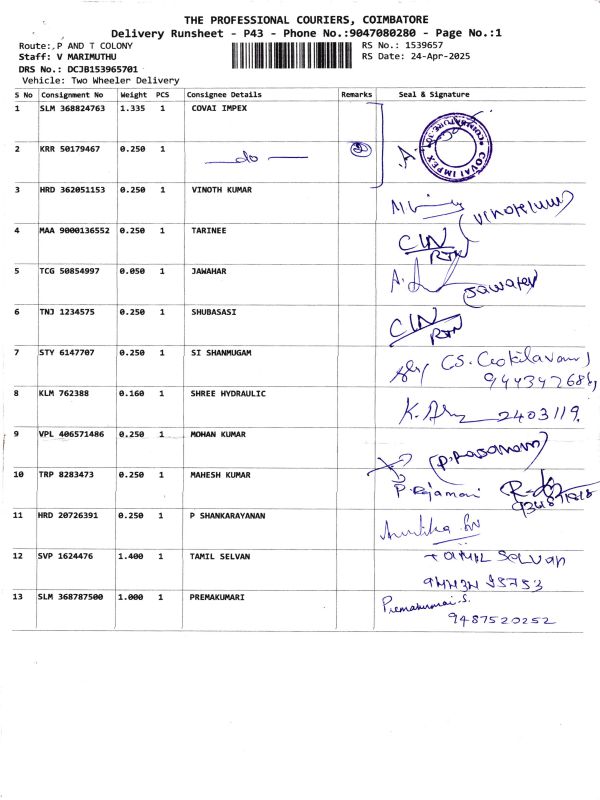 THE PROFESSIONAL COURIERS, COIMBATORE
Delivery Runsheet - P43 - Phone No.:9047080280 - Page No.:1
Route: P AND T COLONY
RS No.: 1539657
Staff: V MARIMUTHU
RS Date: 24-Apr-2025
DRS No.: DCJB153965701
Vehicle: Two Wheeler Delivery
S No Consignment No Weight PCS Consignee Details Remarks Seal & Signature
1 SLM 368824763 1.335 1 COVAI IMPEX
COVAI IMPEX
2 KRR 50179467 0.250 1 — do — A.
3 HRD 362051153 0.250 1 VINOTH KUMAR
4 MAA 9000136552 0.250 1 TARINEE
5 TCG 50854997 0.050 1 JAWAHAR
6 TNJ 1234575 0.250 1 SHUBASASI
7 STY 6147707 0.250 1 SI SHANMUGAM
8 KLM 762388 0.160 1 SHREE HYDRAULIC K.
2403119.
9 VPL 406571486 0.250 1 MOHAN KUMAR
10 TRP 8283473 0.250 1 MAHESH KUMAR
11 HRD 20726391 0.250 1 P SHANKARAYANAN
12 SVP 1624476 1.400 1 TAMIL SELVAN TAMIL SELVAN
13 SLM 368787500 1.000 1 PREMAKUMARI Premakumari.S.
9487520252